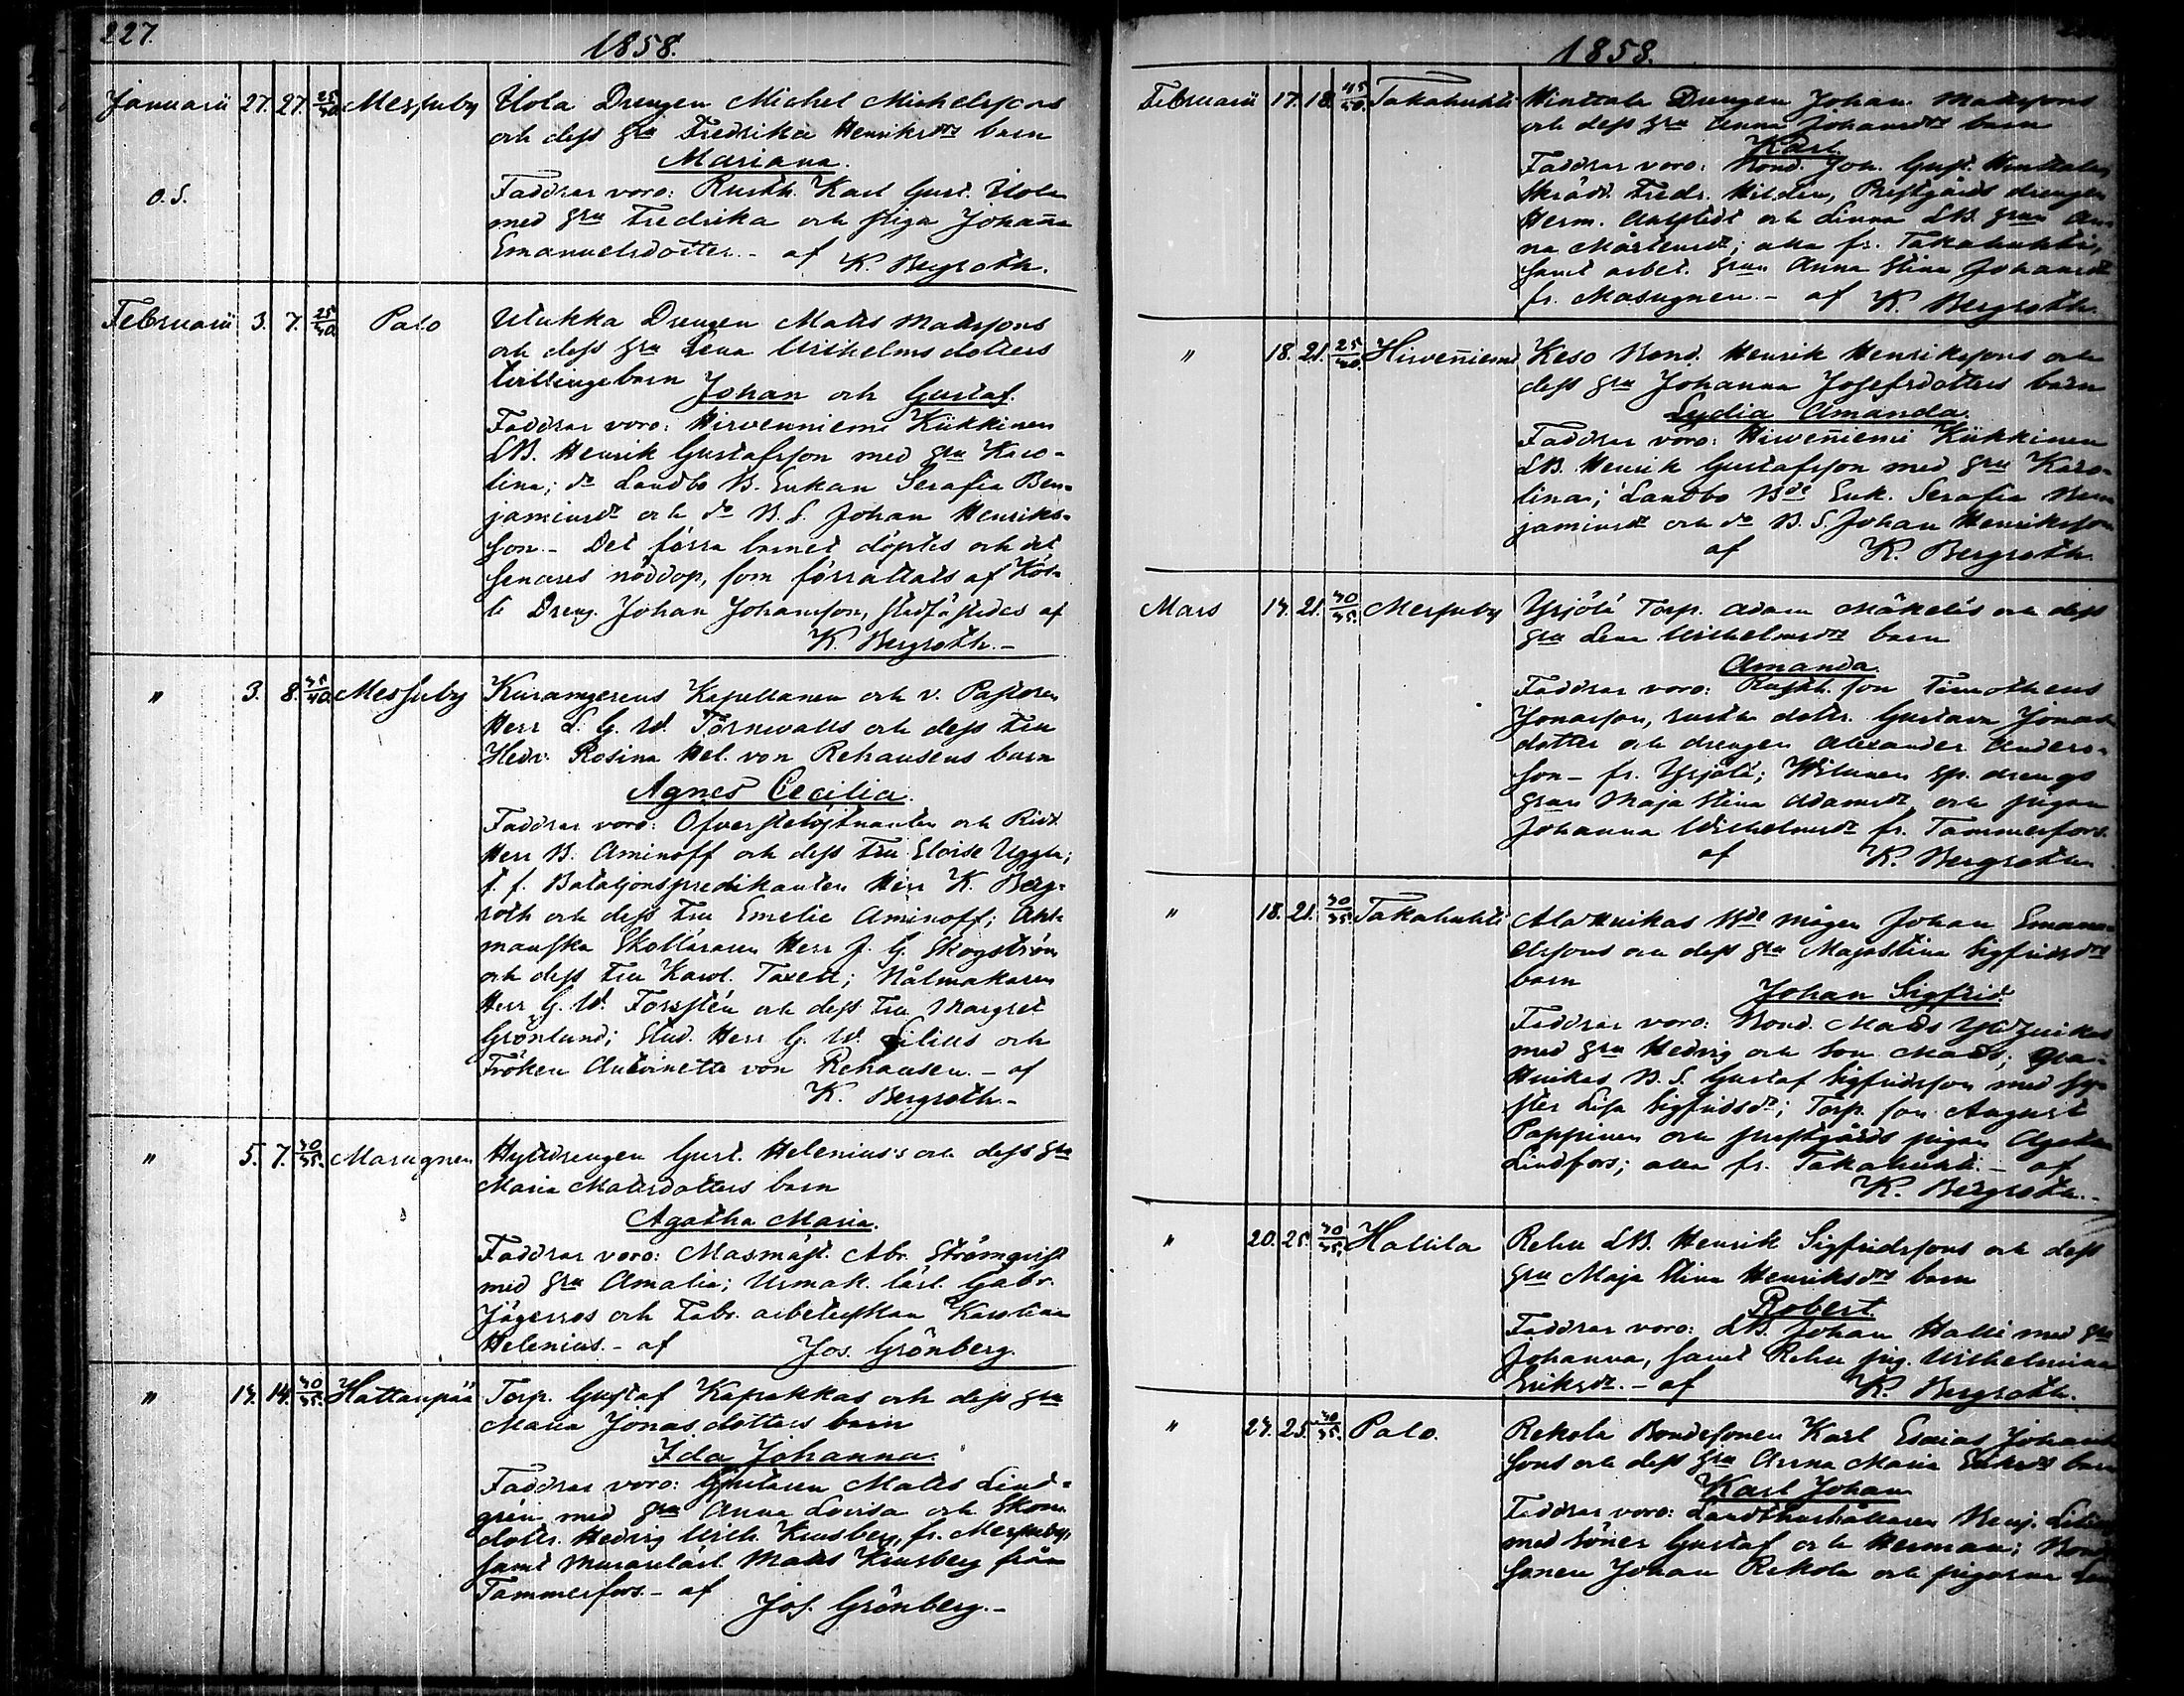 227.
1858.
Januarii 27. 27. 25/30. Messuby Uola Drengen Michel Michelssons
och dess hu Fredrika Henriksdrs barn
Mariana.
o.S. Faddrar voro: Rusth. Karl Gust. Uola
med hu Fredrika och piga Johanna
Emanuelsdotter. - af K. Bergroth.
Februarii 3. 7. 25/30. Palo Utukka Drengen Matts Mattssons
och dess hu Lena Wilhelmsdotters
tvillingebarn Johan och Gustaf.
Faddrar voro: Hirvenniemi Kükkinen
LB. Henrik Gustafsson med hu Karo-
lina; do Landbo B. Enkan Serafia Ben-
jaminsdr och do B.S. Johan Henriks-
son. - Det förra barnet döptes och det
senares nöddop, som förrättats af
Dreng. Johan Johansson, stadfästades af
K. Bergroth. -
" 3. 8. 35/40. Messuby Kuramgerens Kapellanen och v. Pastoren
Herr L. G. W. Törnwalls och dess Fru
Hedv. Rosina Hel. von Rehausens barn
Agnes Cecilia.
Faddrar voro: Öfverstelöjtnanten och Ridd.
Herr B. Aminoff och dess Fru Eloise Uggla;
t. f. Bataljonspredikanten Herr K. Berg-
roth och dess Fru Emelie Aminoff; Ahl-
manska Skolläraren Herr J. G. Skogström
och dess Fru Karol. Taxell; Nålmakaren
Herr G. W. Forsstén och dess Fru Margret
Grönlund; Stud. Herr G. W. Lilius och
Fröken Antoinette von Rehausen. - af
K. Bergroth. -
" 5. 7. 30/35. Masugnen Hyttdrengen Gust. Helenius's och dess hu
Maria Mattsdotters barn
Agatha Maria.
Faddrar voro: Masmäst. Abr. Strömqvist
med hu Amalia; Urmak. lärl. Gabr.
Jägerros och Fabr. arbeterskan Karolina
Helenius. - af Jos. Grönberg.
" 14. 14. 30/35. Hattanpää Torp. Gustaf Kapakkas och dess hu
Maria Jonasdotters barn
Ida Johanna.
Faddrar voro: Gjutaren Matts Lind-
grén med hu Anna Lovisa och Skom.
dottr. Hedvig Wilh. Krusberg fr. Messuby,
samt Murarelärl. Matts Krusberg från
Tammerfors. - af Jos. Grönberg. -
1858.
Februarii 17. 18. 45/50. Takahuhti Hinttala Drengen Johan Mattssons
och dess hu Anna Johansdrs barn
Karl.
Faddrar voro: Bond. Joh. Gust. Hinttala,
Skrädd. Fredr. Hildén, Prestgårds drengen
Herm. Ahlstedt och Linna LB. hun An-
na Mårtensdr; alla fr. Takahuhti,
samt arbet. hun Anna Stina Johansdr
fr. Masugnen. - af K. Bergroth.
" 18. 21. 25/30. Hirvenniemi Keso Bond. Henrik Henrikssons och
dess hu Johanna Josefsdotters barn
Lydia Amanda.
Faddrar voro: Hirvenniemi Kükkinen
LB. Henrik Gustafsson med hu Karo-
lina; Landbo Bde Enk. Serafia Ben-
jaminsdr och do B.S. Johan Henriksson
af K. Bergroth.
Mars 14. 21. 30/35. Messuby Yrjölä Torp. Adam Mäkeläs och dess
hu Lena Wilhelmsdrs barn
Amanda.
Faddrar voro: Rusth. son Timotheus
Jonasson, rusth. dottr. Gustava Jonas-
dotter och drengen Alexander Anders-
son - fr. Yrjölä; sp. drengs
hun Maja Stina Adamsdr och pigan
Johanna Wilhelmsdr fr. Tammerfors.
af K. Bergroth
" 18. 21. 30/35. Takahuhti Ala Huikas Bde mågen Johan Emanu-
elssons och dess hu Maja Stina Sigfridsdrs
barn Johan Sigfrid.
Faddrar voro: Bond. Matts Yli Huikas
med hu Hedvig och son Matts; Ala-
Huikas B. S. Gustaf Sigfridsson med sy-
ster Lisa Sigfridsdr; Torp. son August
Pappinen och prestgårds pigan Agata
Lindfors; alla fr. Takahuhti. - af
K. Bergroth. -
" 20. 25. 30/35. Hallila Rehu LB. Henrik Sigfridssons och dess
hu Maja Stina Henriksdrs barn
Robert.
Faddrar voro: LB. Johan Halli med hu
Johanna, samt Rehu pig. Wilhelmina
Eriksdr. - af K. Bergroth.
" 24. 25. 30/35. Palo. Rekola Bondesonen Karl Esaias Johans-
sons och dess hu Anna Maria Eriksdrs barn
Karl Johan
Faddrar voro: Landthushållaren Benj. Lilius
med söner Gustaf och Herman; Bonde
sonen Johan Rekola och pigorna